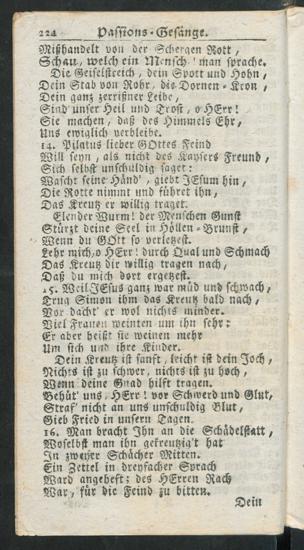 224 Passions-Gesänge.
Mißhandelt von der Schergen Rott,
Schau, welch ein Mensch! man sprache.
Die Geiselstreich, dein Spott und Hohn,
Dein Stab von Rohr, die Dornen-Kron,
Dein ganz zerrißner Leibe,
Sind unser Heil und Trost, o HErr!
Sie machen, daß des Himmels Ehr,
Uns ewiglich verbleibe.
14. Pilatus lieber GOttes Feind
Will seyn, als nicht des Kaysers Freund,
Sich selbst unschuldig saget:
Wascht seine Händ', giebt JEsum hin,
Die Rotte nimmt und führet ihn,
Das Kreutz er willig traget.
Elender Wurm! der Menschen Gunst
Stürzt deine Seel in Höllen-Brunst,
Wenn du GOtt so verletzest.
Lehr mich, o HErr! durch Qual und Schmach
Das Kreutz dir willig tragen nach,
Daß du mich dort ergetzest.
15. Weil JEsus ganz war müd und schwach,
Trug Simon ihm das Kreutz bald nach,
Vor dacht' er wol nichts minder.
Viel Frauen weinten um ihn sehr:
Er aber heißt sie weinen mehr
Um sich und ihre Kinder.
Dein Kreutz ist sanft, leicht ist dein Joch,
Nichts ist zu schwer, nichts ist zu hoch,
Wenn deine Gnad hilft tragen.
Behüt' uns, HErr! vor Schwerd und Glut,
Straf' nicht an uns unschuldig Blut,
Gieb Fried in unsern Tagen.
16. Man bracht Ihn an die Schädelstatt,
Woselbst man ihn gekreutzig't hat
In zweyer Schächer Mitten.
Ein Zettel in dreyfacher Sprach
Ward angeheft: des HErren Rach
War, für die Feind zu bitten.
Dein